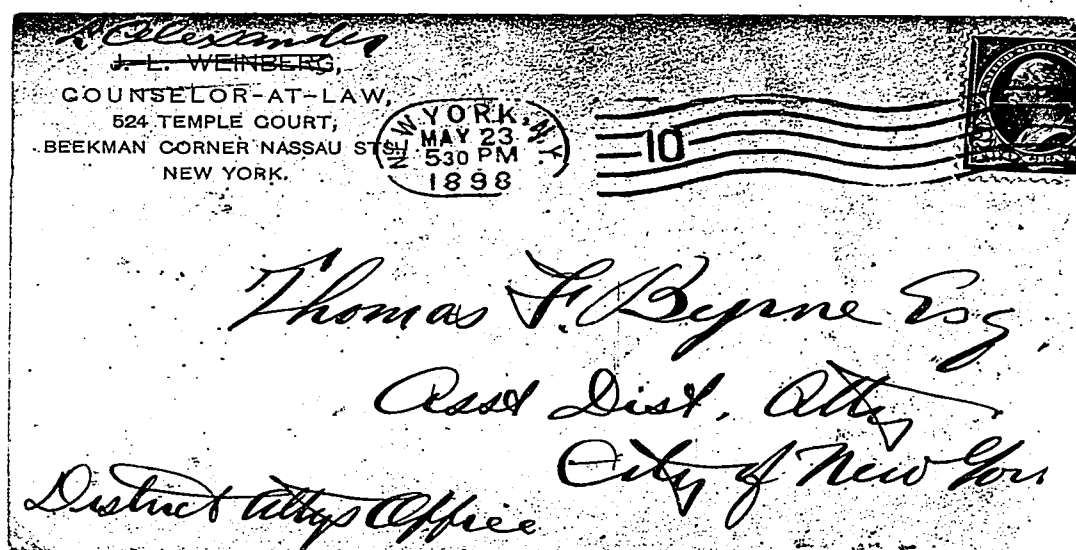 Alexander
J. L. WEINBERG,
COUNSELOR-AT-LAW,
524 TEMPLE COURT,
BEEKMAN CORNER NASSAU STS.
NEW YORK.
NEW YORK, N.Y.
MAY 23
530 PM
1898
10
Thomas F. Byrne Esq
Asst Dist. Atty
City of New Yor
District Attys Office